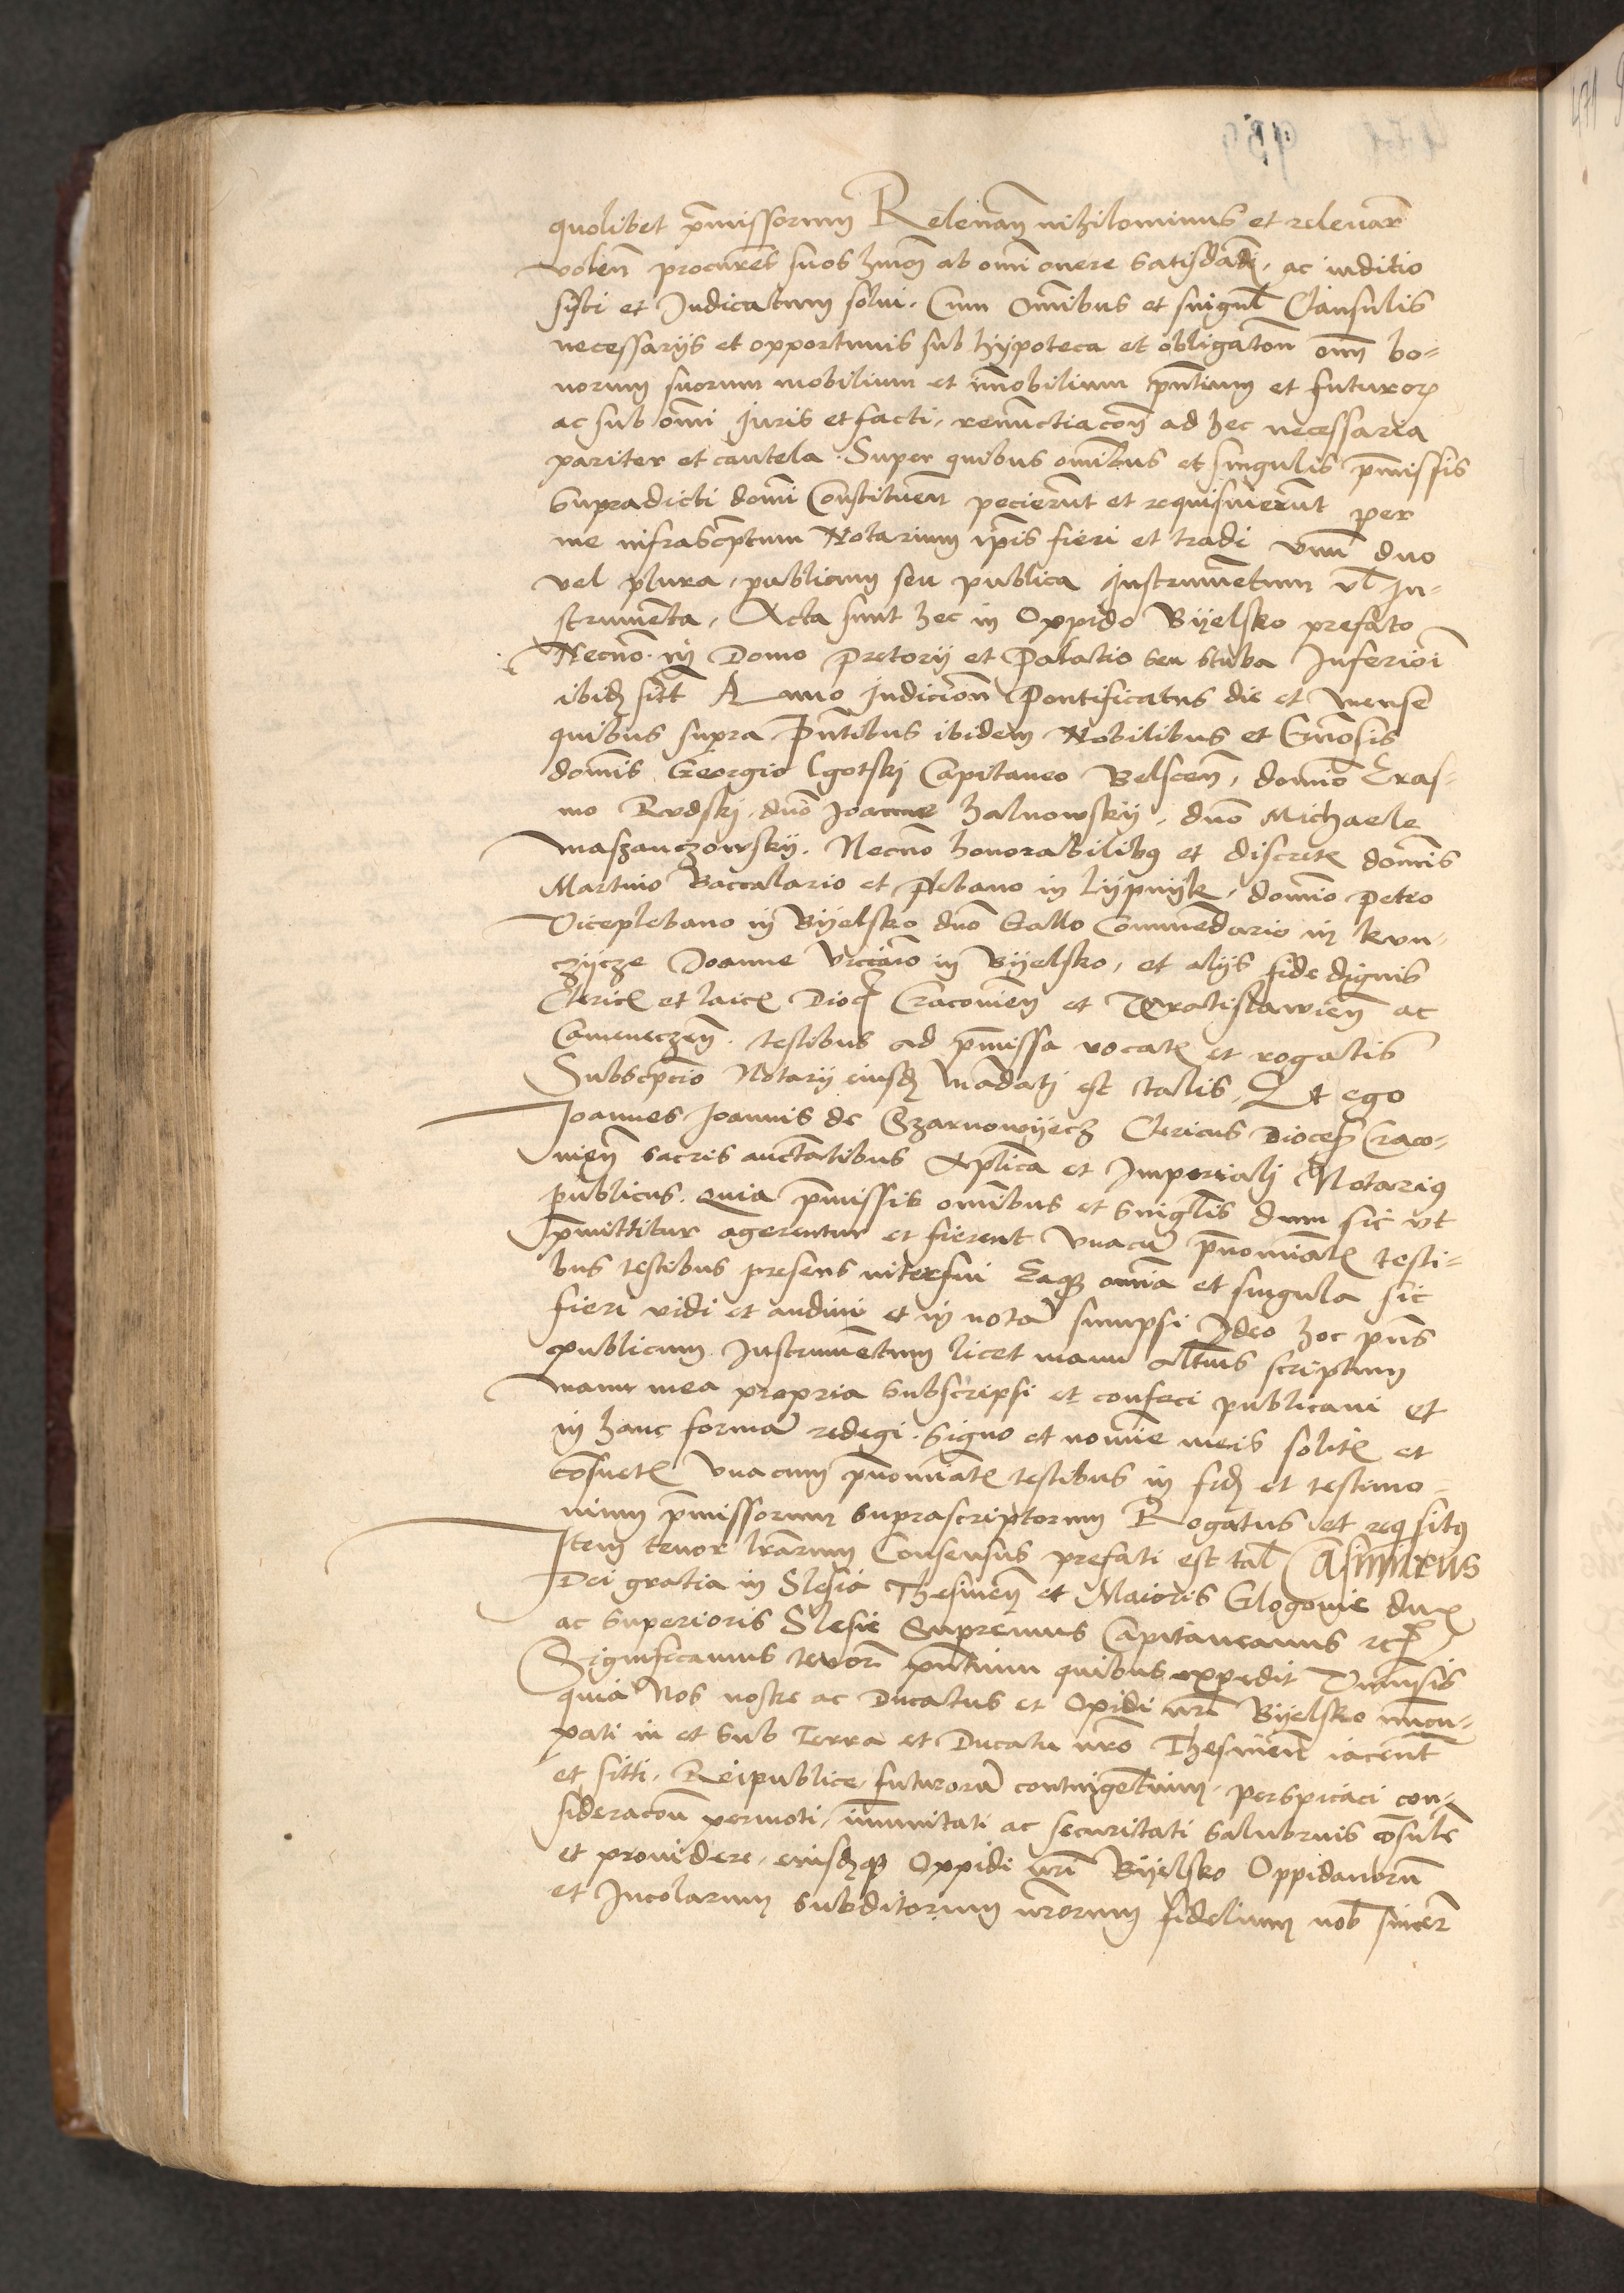 quolibet p̄missorum Relevan̄ nihilominus et relevar̄
volen̄ procur̄es suos hm̄oi ab om̄i onere satisdādi, ac iuditio
sisti et Judicatum solui. Cum Om̄ibus et singul̄ Clausulis
necessarijs et opportunis sub hypoteca et obligatōn om̄ bo-
norum suorum mobilium et im̄obilium pn̄tium et futuror̄
ac sub om̄i Juris et facti, renunctiacōn ad hec necessaria
pariter et cautela. Super quibus om̄ibus et singulis p̄missis
Supradicti domī Constituen̄t pecierūt et requisiuerūt per
me infrascp̄tum Notarium ip̄is fieri et tradi vnū duo
vel plura, publicum seu publica Instrumētum vl̄ In-
strumenta, Acta sunt hec in Oppido Byelsko prefato
Necnō in Domo Pretorij et Palatio seu stuba Inferiori
ibidē sitt Anno Indicion̄ Pontificatus die et mense
quibus supra Pn̄tibus ibidem Nobilibus et Gn̄osis
dom̄is Georgio Lgotskj Capitaneo Belscen̄, domīo Eras-
mo Rudskj, dnō Joanne halnowskij, dnō Michaele
maszanczowskij. Necnō honorabilibꝫ et discretis dom̄is
Martino Baccalario et Plebano in Lijpnijk, domīo Petro
Viceplebano in Bijelsko dnō Gallo Commendario in kun-
czycze Joanne in Bijelsko, et alijs fide dignis
Clericꝭ et laicꝭ Dioc̄ Cracouien̄ et Wratislawien̄ ac
Cameneczen̄. testibus ad p̄missa vocatꝭ et rogatis
Subscpc̄io Notarij eiusdē mādatj est talis, Et ego
Joannes Joannis de Czarnowijecz Clericus Dioces̄ Craco-
uien̄ sacris auctātibus Ap̄lica et Imperialj Notariꝰ
publicus. quia p̄missis om̄ibus et singl̄is dum sic vt
p̄mittitur agerentur et fierent vnacū p̄nomīatꝭ testi-
bus testibus presens interfui Eaqꝫ om̄ia et singula sic
fieri vidi et audiui et in notā sumpsi Ideo hoc pn̄s
publicum Instrumētum licet manu alt̄ius scriptum
manu mea propria subscripsi et confeci publicaui et
in hanc formā redegi. Signo et nomīe meis solitꝭ et
cōsuetꝭ vnacum p̄nomīatꝭ testibus in fidē et testimo-
nium p̄missorum suprascriptorum Rogatus et reqsitꝰ
Item tenor lr̄arum Consensus prefati est tal̄ Casimirus
Dei gratia in Slesia Thesinen̄ et Maioris Glogouie dux
ac Superioris Slesie Supremus Capitaneanus etc̄
Significamus tenor̄e pn̄tium quibus expedit Vniūsis
quia Nos nostre ac Ducatus et Opidi nr̄i Bijelsko nuncu-
pati in et sub Terra et Ducatu nr̄o Thesinen̄ iacen̄t
et sitti, Reipublice, futurorū contingētium, perspicaci con-
sideracōn permoti, im̄unitati ac securitati salubrius cōsule
et prouidere, eiusdēqꝫ Oppidi nr̄i Bijelsko Oppidanorū
et Incolarum subditorum nr̄orum fidelium nob̄ sincer̄